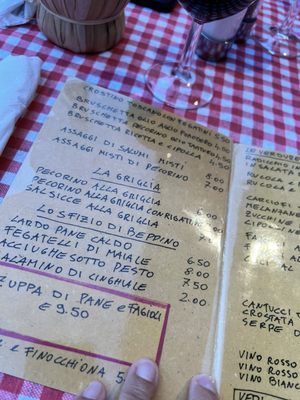 CROSTINO TOSCANO CON FEGATINI 5.50
BRUSCHETTA OLIO AGLIO POMODORO 4.50
BRUSCHETTA PECORINO E
BRUSCHETTA RICOTTA E CIPOLLA 4.50
ASSAGGI DI SALUMI MISTI 8.00
ASSAGGI MISTI DI PECORINO 7.00
LA GRIGLIA
PECORINO ALLA GRIGLIA 6.00
PECORINO ALLA GRIGLIA CON RIGATINO
SALSICCE ALLA GRIGLIA
LO SFIZIO DI BEPPINO
LARDO PANE CALDO 6.50
FEGATELLI DI MAIALE 8.00
ACCIUGHE SOTTO PESTO 7.50
SALAMINO DI CINGHIALE 2.00
ZUPPA DI PANE E FAGIOLI
€ 9.50
E FINOCCHIONA
LE VERDURE
RADICCHIO
INSALATA
RUCOLA E
RUCOLA E
CARCIOFI
MELANZANE
ZUCCHINE
CIPOLLINE
CANTUCCI
CROSTATA
SERPE D
VINO ROSSO
VINO ROSSO
VINO BIANCO